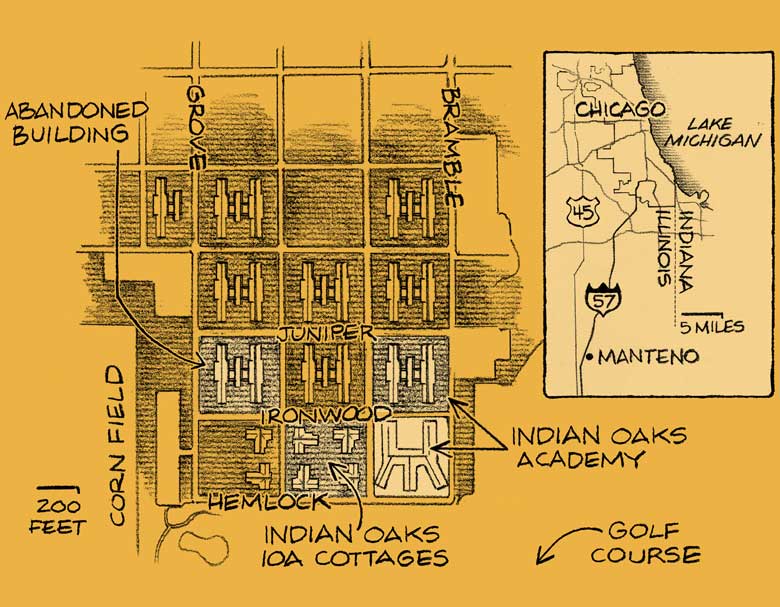 ABANDONED
BUILDING
GROVE
BRAMBLE
JUNIPER
IRONWOOD
HEMLOCK
CORN FIELD
200
FEET
INDIAN OAKS
10A COTTAGES
INDIAN OAKS
ACADEMY
GOLF
COURSE
CHICAGO
LAKE
MICHIGAN
45
ILLINOIS
INDIANA
57
5 MILES
MANTENO